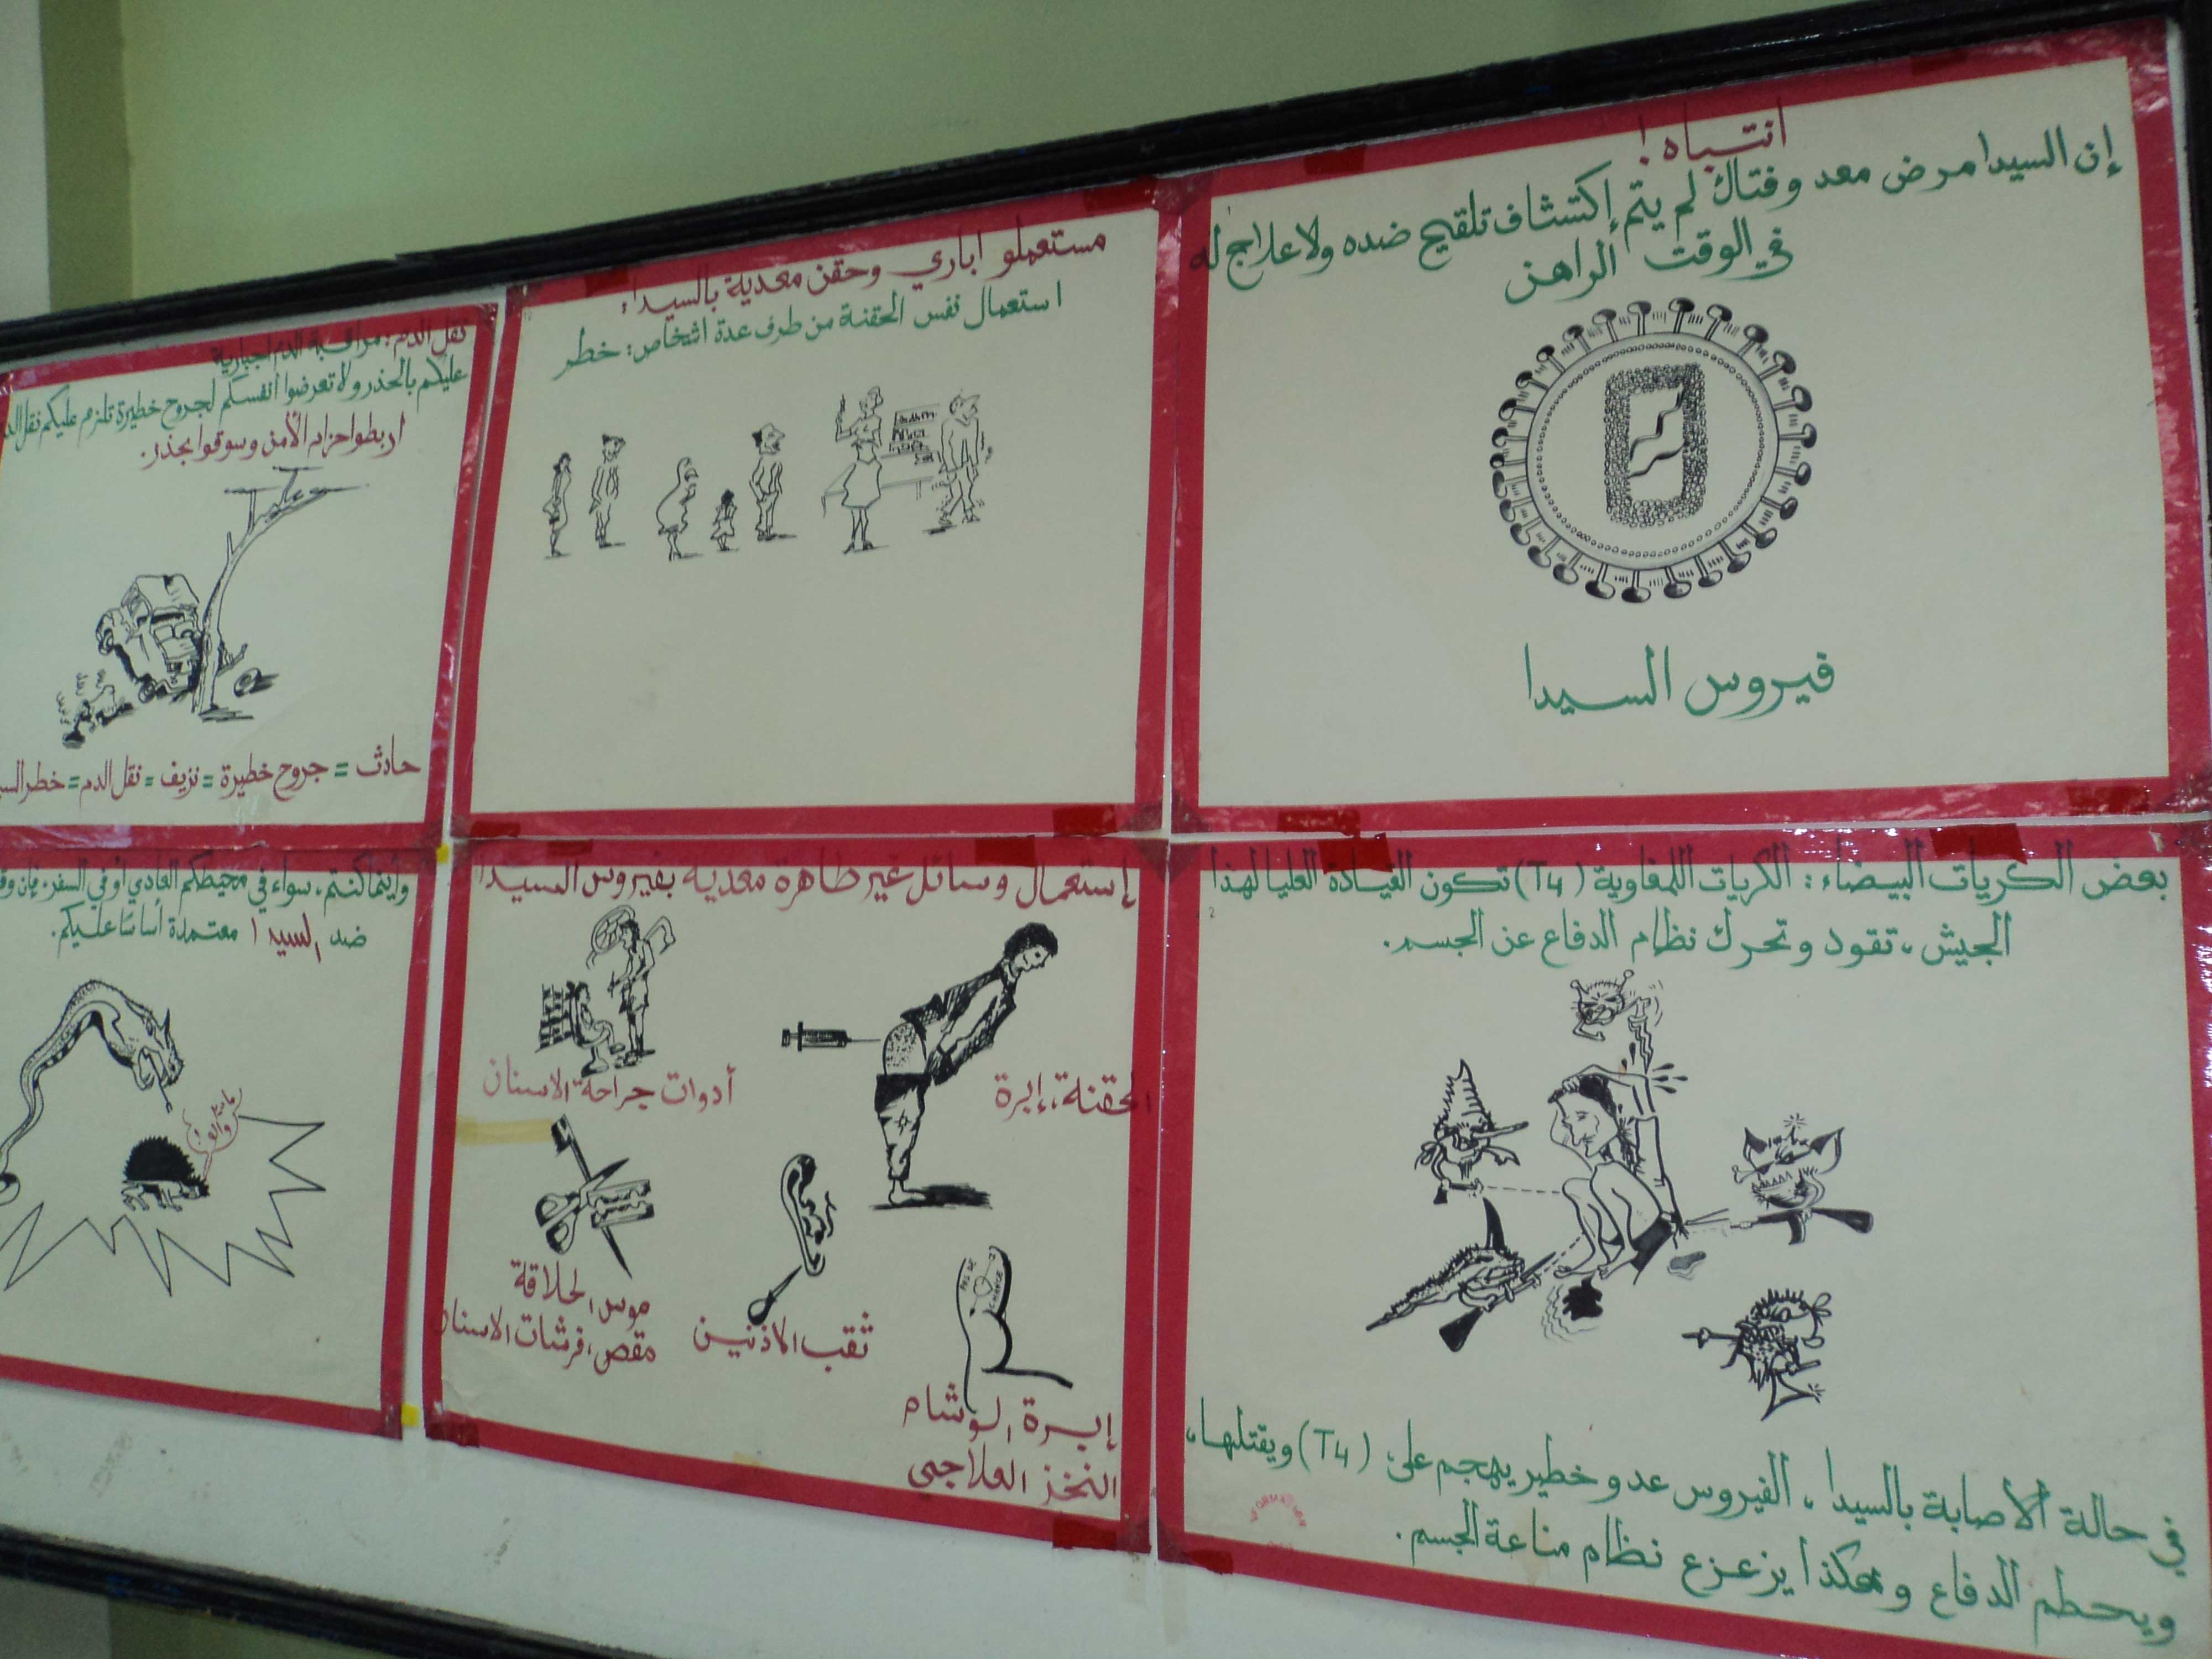 انتباه !
إن السيدا مرض معد وفتاك لم يتم إكتشاف تلقيح ضده ولا علاج له
في الوقت الراهن
فيروس السيدا
مستعملو اباري وحقن معدية بالسيدا:
استعمال نفس الحقنة من طرف عدة اشخاص: خطر
نقل الدم: مراقبة الدم اجبارية
عليكم بالحذر ولا تعرضوا انفسكم لجروح خطيرة تلزم عليكم نقل الد
اربطوا حزام الأمن وسوقوا بحذر.
حادث = جروح خطيرة = نزيف = نقل الدم = خطر السي
بعض الكريات البيضاء: الكريات اللمفاوية (T4) تكون القيادة العليا لهذا
الجيش، تقود وتحرك نظام الدفاع عن الجسم.
في حالة الاصابة بالسيدا، الفيروس عدو خطير يهجم على (T4) ويقتلها،
ويحطم الدفاع وهكذا يزعزع نظام مناعة الجسم.
إستعمال وسائل غير طاهرة معدية بفيروس السيدا
الحقنة، إبرة
أدوات جراحة الاسنان
موس الحلاقة
مقص، فرشات الاسنان
ثقب الاذنين
PAS DE
CHANCE
إبرة الوشام
النخز العلاجي
وأينما كنتم، سواء في محيطكم العادي أو في السفر، فإن وق
ضد السيدا معتمدة أساسا عليكم.